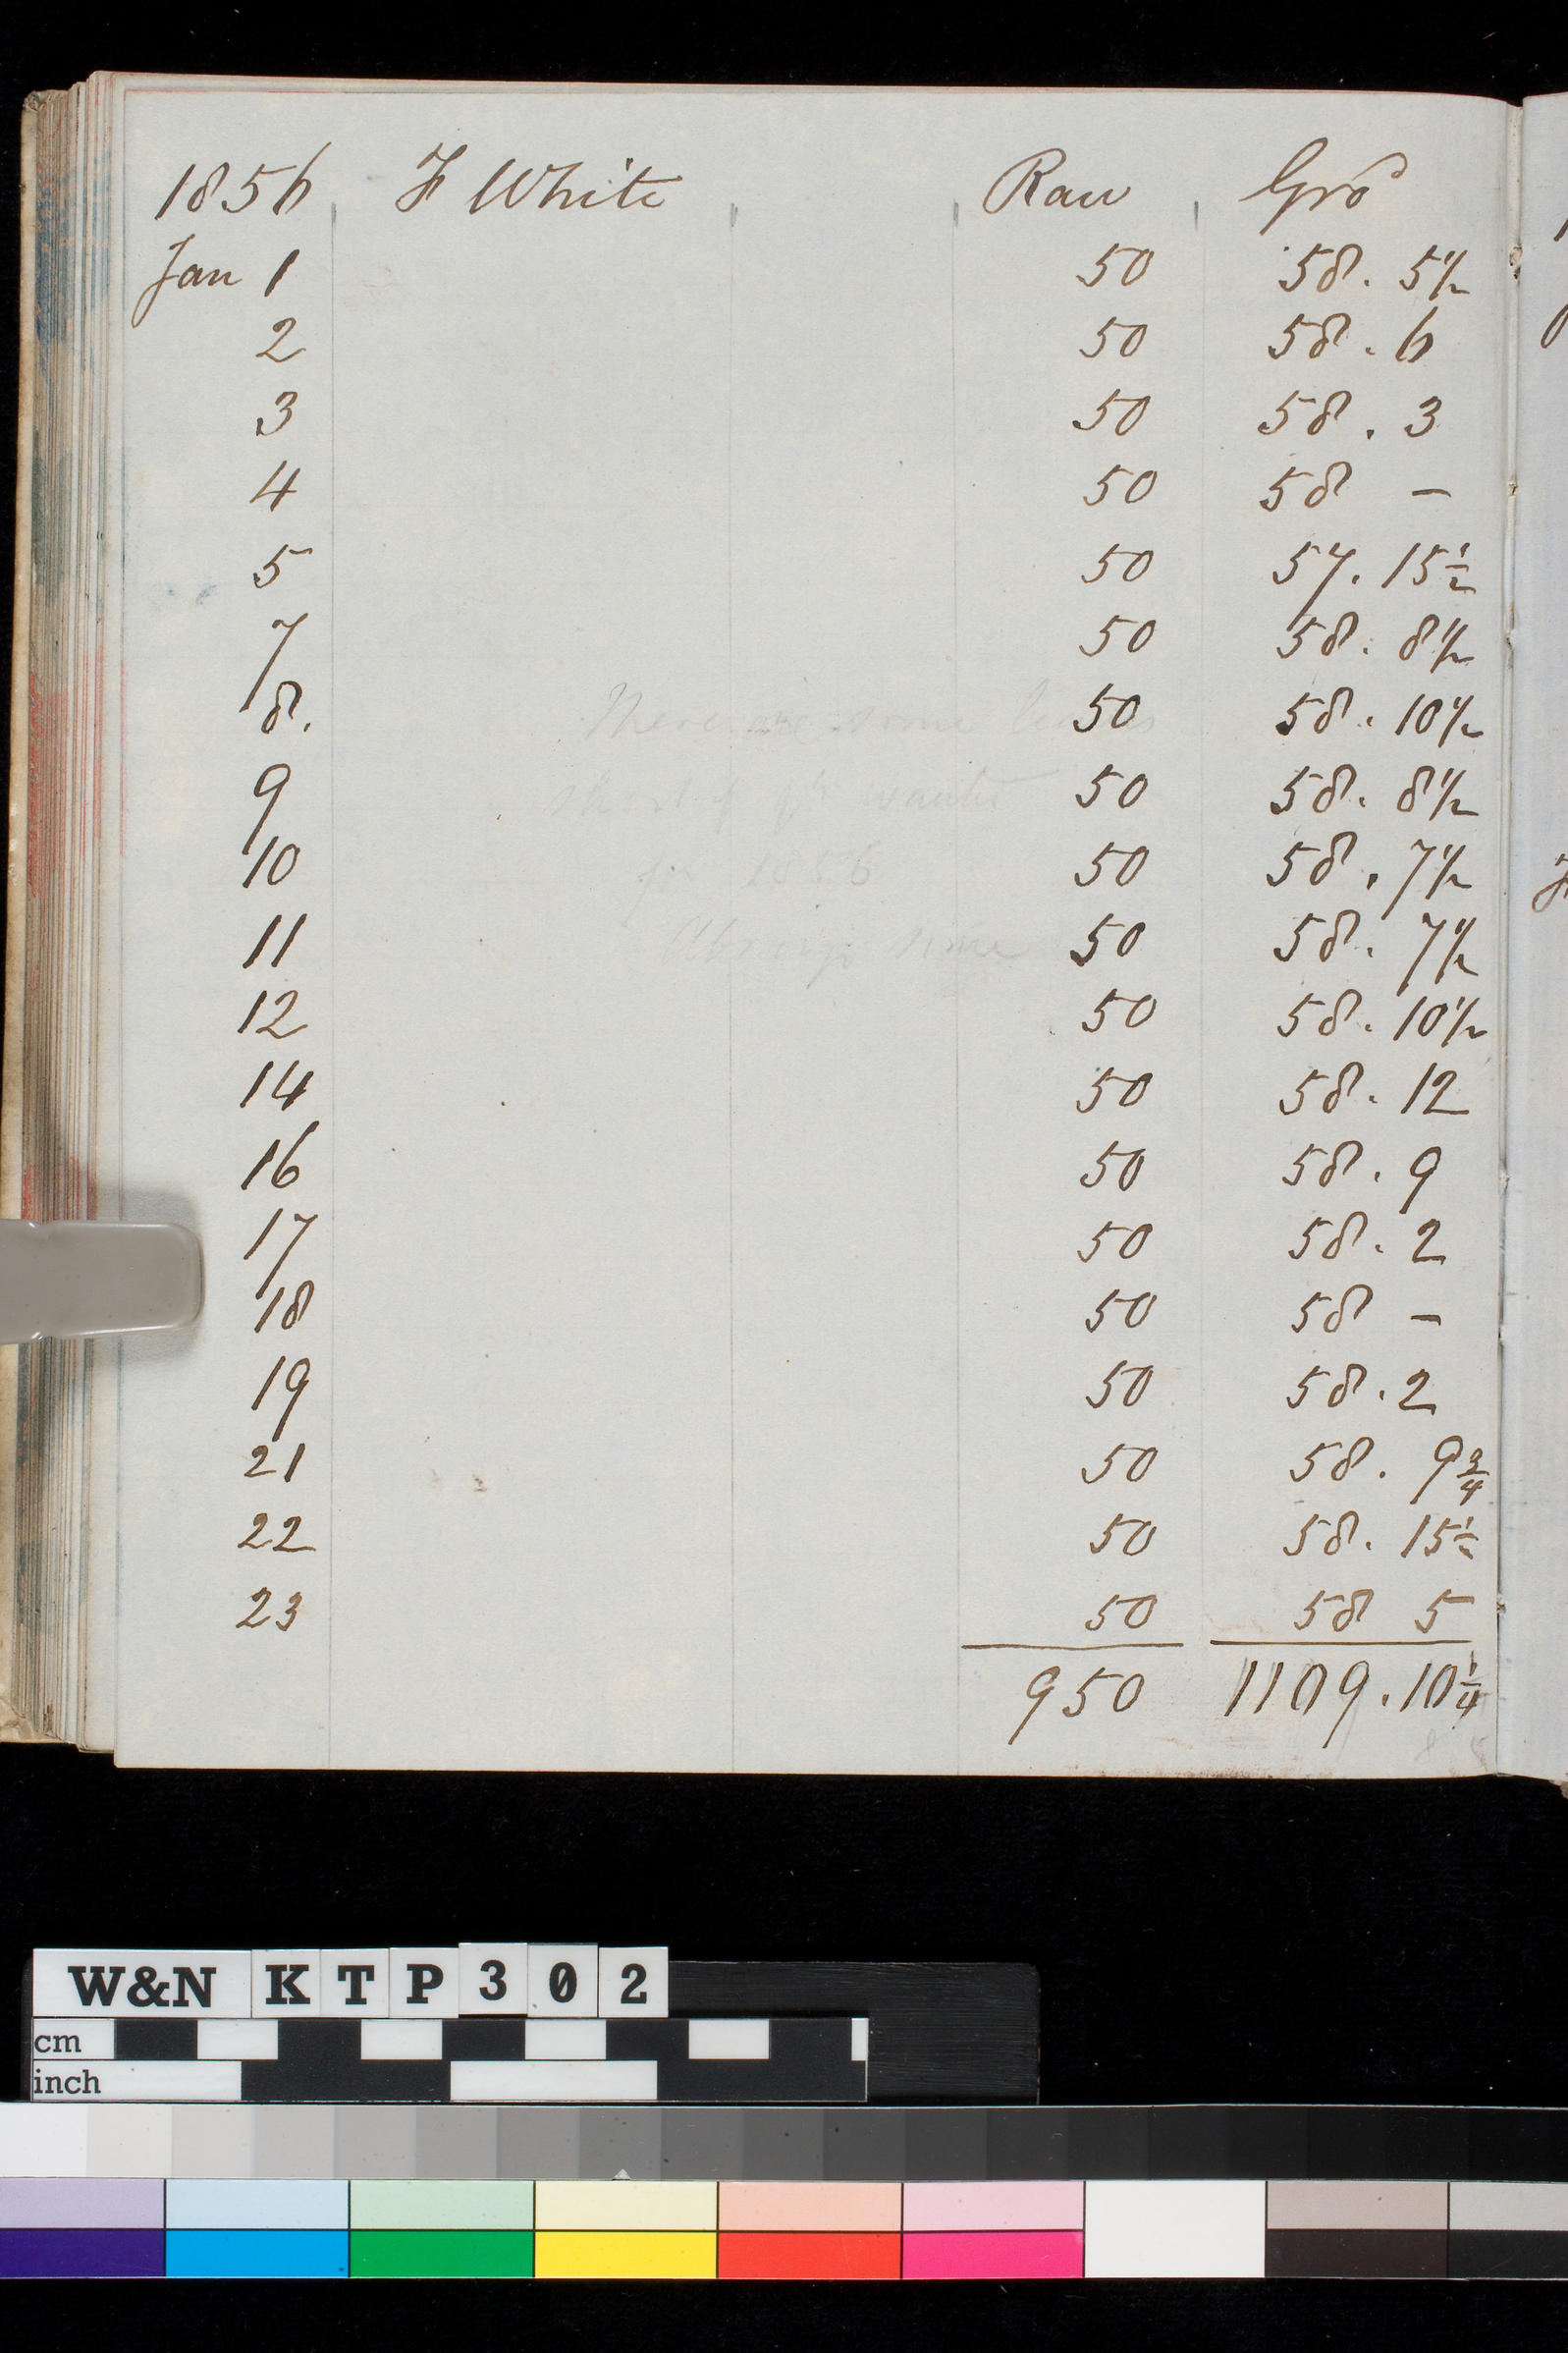 1856 F White Raw Gro
Jan 1 50 58. 5 1/2
2 50 58. 6
3 50 58. 3
4 50 58 -
5 50 57. 15 1/2
7 50 58. 8 1/2
8. 50 58. 10 1/2
9 50 58. 8 1/2
10 50 58. 7 1/2
11 50 58. 7 1/2
12 50 58. 10 1/2
14 50 58. 12
16 50 58. 9
17 50 58. 2
18 50 58 -
19 50 58. 2
21 50 58. 9 3/4
22 50 58. 15 1/2
23 50 58 5
950 1109. 10 1/4
There are some
wants
for 1856
some
W&N KTP302
cm
inch